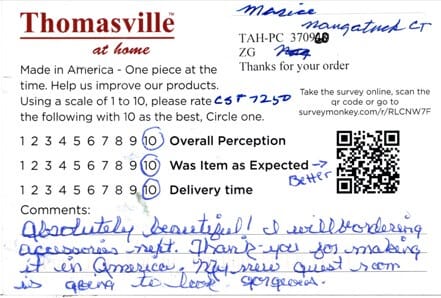 Thomasville™
at home
Marice
Naugatuck CT
TAH-PC 370960
ZG
Thanks for your order
Made in America - One piece at the
time. Help us improve our products.
Using a scale of 1 to 10, please rate CST 7250
the following with 10 as the best, Circle one.
Take the survey online, scan the
qr code or go to
surveymonkey.com/r/RLCNW7F
1 2 3 4 5 6 7 8 9 10 Overall Perception
1 2 3 4 5 6 7 8 9 10 Was Item as Expected → Better
1 2 3 4 5 6 7 8 9 10 Delivery time
Comments:
Absolutely beautiful! I will b ordering
accessories next. Thank-you for making
it in America. My new guest room
is going to look gorgeous.